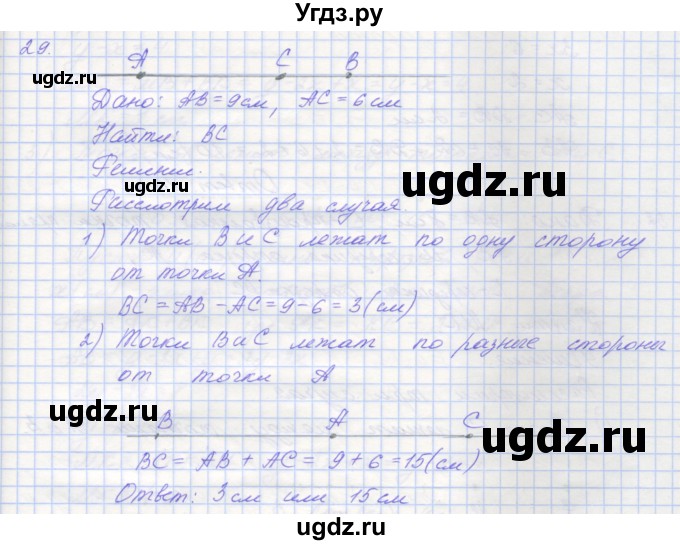 Угдз.ру
29.
A C B
Дано: AB = 9 см, AC = 6 см
Найти: BC
Решение.
Рассмотрим два случая
1) Точки B и C лежат по одну сторону
от точки A.
BC = AB - AC = 9 - 6 = 3 (см)
2) Точки B и C лежат по разные стороны
от точки A
B A C
BC = AB + AC = 9 + 6 = 15 (см)
Ответ: 3 см или 15 см
ugdz.ru
ugdz.ru
ugdz.ru
ugdz.ru
ugdz.ru
ugdz.ru
ugdz.ru
ugdz.ru
ugdz.ru